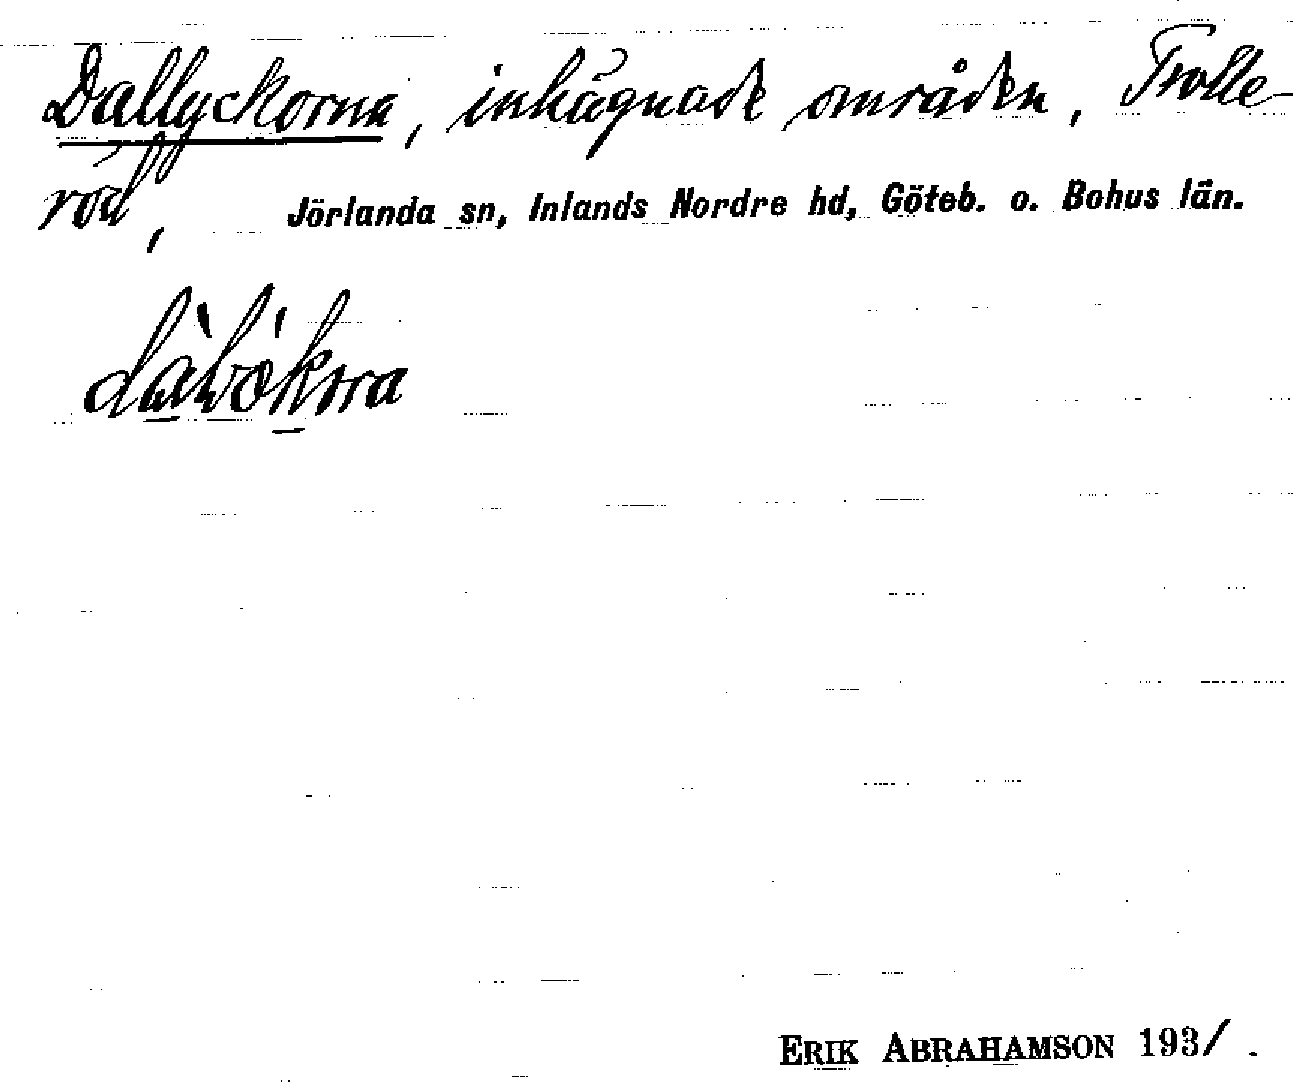 Dallyckorna, inhägnade områden, Trolle-
röd, Jörlanda sn, Inlands Nordre hd, Göteb. o. Bohus län.
ERIK ABRAHAMSON 1931.